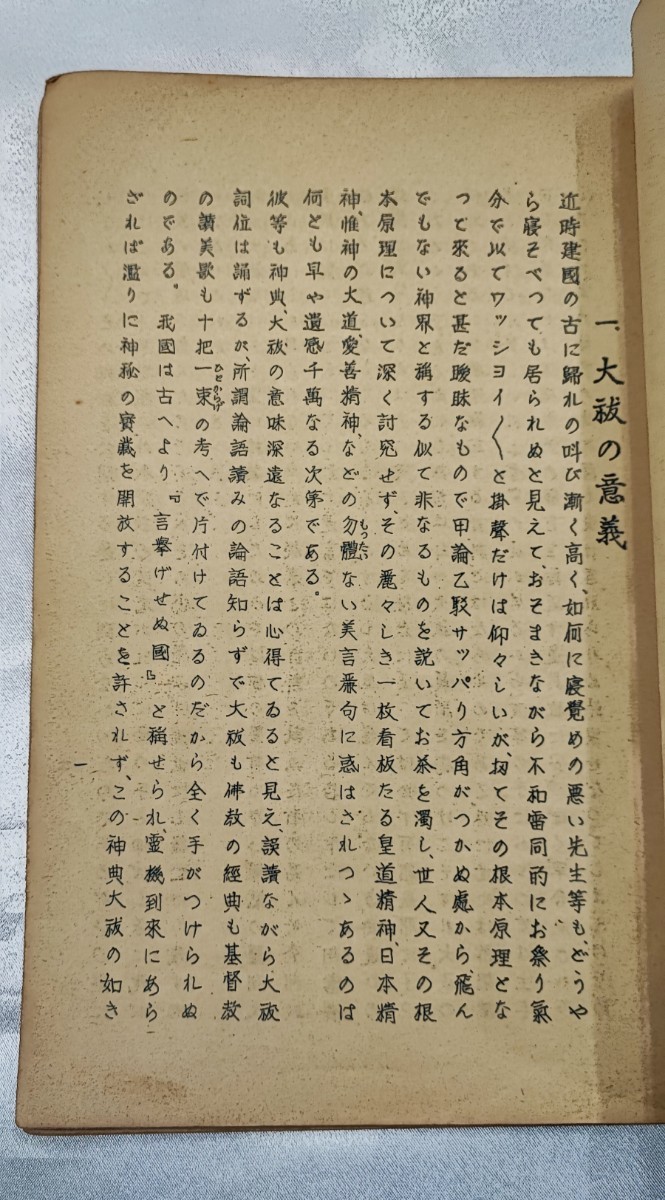 一、大祓の意義
近時建國の古に歸れの叫び漸く高く、如何に寢覺めの悪い先生等も、どうや
ら寢そべつても居られぬと見えて、おそまきながら不和雷同的にお祭り氣
分で以てワッショイ〳〵と掛聲だけは仰々しいが、扨てその根本原理とな
つて來ると甚だ曖昧なもので甲論乙駁サッパり方角がつかぬ處から飛ん
でもない神界と稱する似て非なるものを説いてお茶を濁し、世人又その根
本原理について深く討究せず、その麗々しき一枚看板たる皇道精神、日本精
神、惟神の大道、愛善精神、などの勿體ない美言麗句に惑はされつゝあるのは
もつたい
何とも早や遺憾千萬なる次第である。
彼等も神典、大祓の意味深遠なることは心得てゐると見え、誤讀ながら大祓
詞位は誦ずるが、所謂論語讀みの論語知らずで大祓も佛教の經典も基督教
の讃美歌も十把一束の考へで片付けてゐるのだから全く手がつけられぬ
ひとからげ
のである。我國は古へより『言擧げせぬ國』と稱せられ、靈機到來にあら
ざれば濫りに神秘の寶藏を開放することを許されず、この神典大祓の如き
一